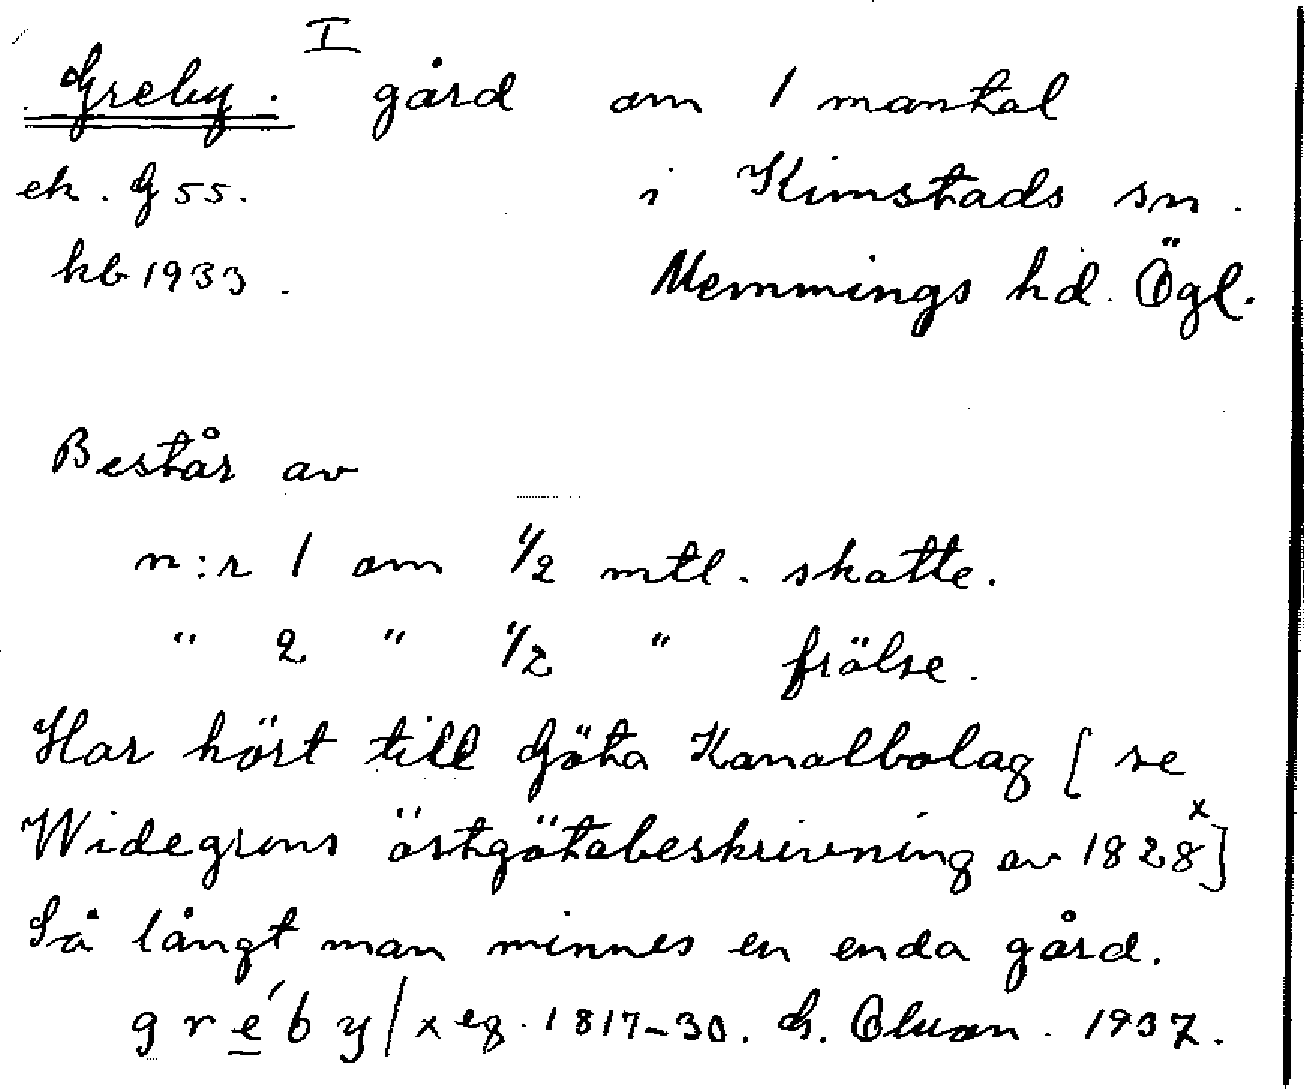 I
Greby. gård om 1 mantal
ek. G 55. i Kimstads sn.
hb 1933. Memmings hd. Ögl.
Består av
n:r 1 om 1/2 mtl. skatte.
" 2 " 1/2 " frälse.
Har hört till Göta Kanalbolag [se
Widegrens östgötabeskrivning av 1828 x]
Så långt man minnes en enda gård.
gre´by / x eg. 1817-30. G. 1937.